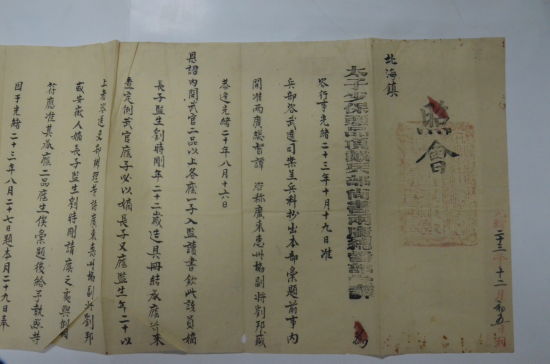 照會
北海鎮
太子少保頭品頂戴兵部尚書兩廣總督部堂譚 為
咨行事光緒二十三年十月十九日准
兵部咨武選司案呈兵科抄出本部彙題前事內
開准兩廣總督譚 咨稱廣東惠州協副將劉邦盛
恭逢光緒二十年八月十六日
恩詔內開武官二品以上各廕一子入監讀書欽此該員嫡
長子監生劉時剛年二十二歲造具冊結承廕前來
查定例武官廕子必以嫡長子又廕監生年二十以
上者
或安徽人嫡長子監生劉時剛請廕之處與例相
符應准其承廕二品廕生俟彙題後給予執照等
因于光緒二十三年八月二十七日題本月二十九日奉
二十三 十二 初五